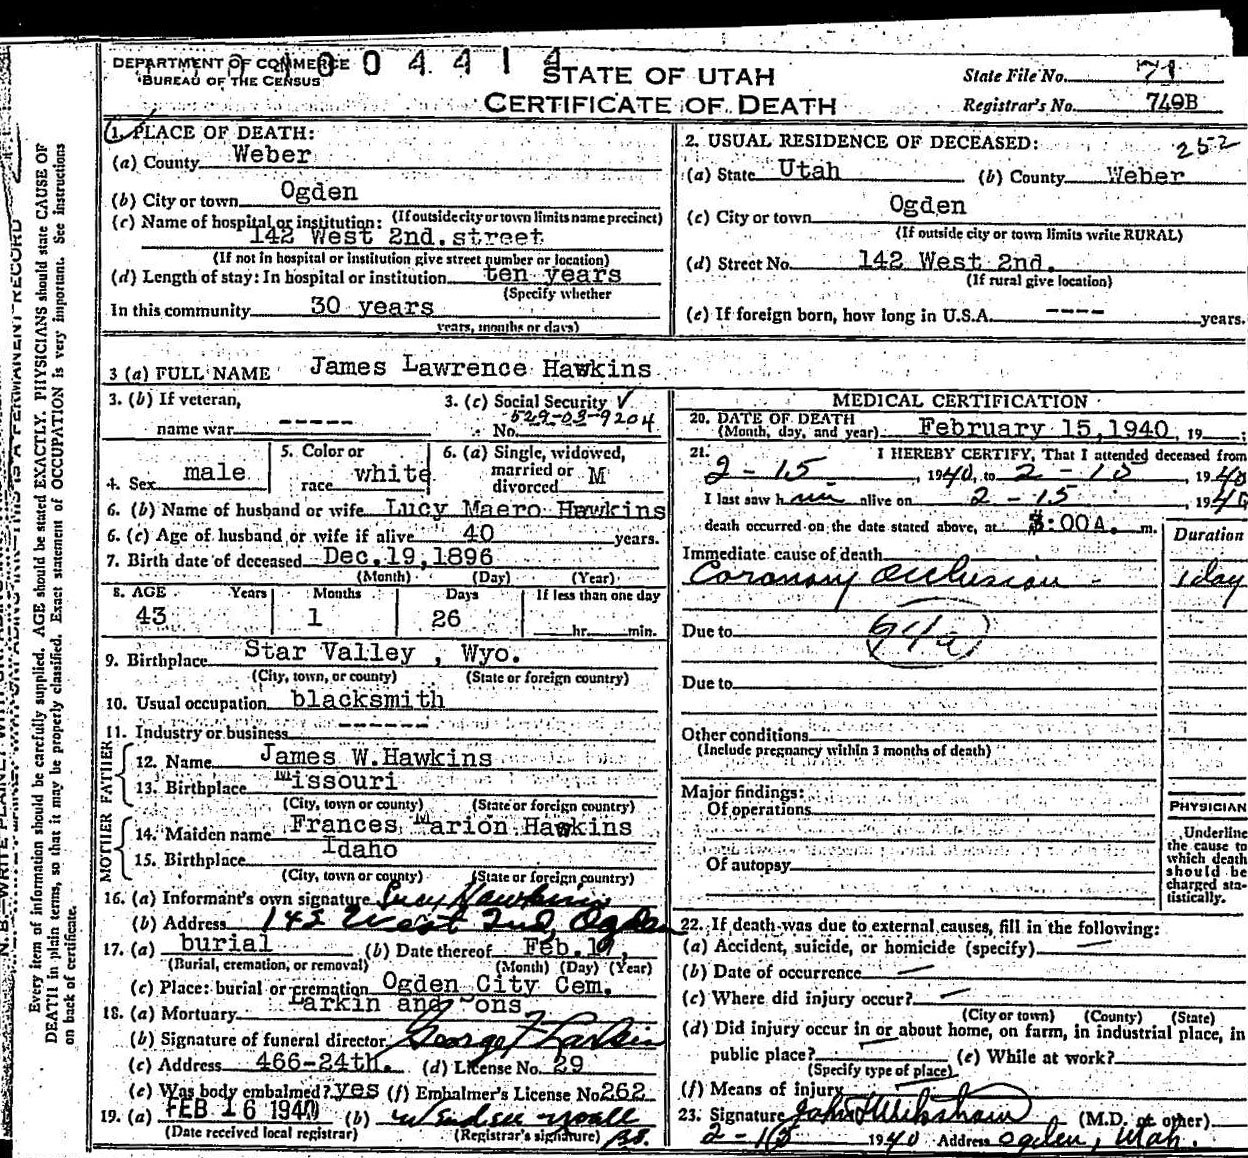 DEPARTMENT OF COMMERCE
BUREAU OF THE CENSUS
0 0 4 4 1 4
STATE OF UTAH
CERTIFICATE OF DEATH
State File No. 71
Registrar's No. 749B
1. PLACE OF DEATH:
(a) County Weber
(b) City or town Ogden
(If outside city or town limits name precinct)
(c) Name of hospital or institution:
142 West 2nd. street
(If not in hospital or institution give street number or location)
(d) Length of stay: In hospital or institution ten years
(Specify whether
In this community 30 years
years, months or days)
2. USUAL RESIDENCE OF DECEASED: 252
(a) State Utah (b) County Weber
(c) City or town Ogden
(If outside city or town limits write RURAL)
(d) Street No. 142 West 2nd.
(If rural give location)
(e) If foreign born, how long in U.S.A. ---- years.
3 (a) FULL NAME James Lawrence Hawkins
3. (b) If veteran,
name war -----
3. (c) Social Security
No. 529-03-9204
4. Sex male
5. Color or
race white
6. (a) Single, widowed,
married or
divorced M
6. (b) Name of husband or wife Lucy Maero Hawkins
6. (c) Age of husband or wife if alive 40 years.
7. Birth date of deceased Dec. 19, 1896
(Month) (Day) (Year)
8. AGE Years Months Days If less than one day
43 1 26 hr. min.
9. Birthplace Star Valley, Wyo.
(City, town, or county) (State or foreign country)
10. Usual occupation blacksmith
11. Industry or business ------
FATHER
12. Name James W. Hawkins
13. Birthplace Missouri
(City, town or county) (State or foreign country)
MOTHER
14. Maiden name Frances Marion Hawkins
15. Birthplace Idaho
(City, town or county) (State or foreign country)
16. (a) Informant's own signature Lucy Hawkins
(b) Address 142 West 2nd, Ogden
17. (a) burial (b) Date thereof Feb.
(Burial, cremation, or removal) (Month) (Day) (Year)
(c) Place: burial or cremation Ogden City Cem.
18. (a) Mortuary Larkin and Sons
(b) Signature of funeral director George F Larkin
(c) Address 466-24th. (d) License No. 29
(e) Was body embalmed? yes (f) Embalmer's License No. 262
19. (a) FEB 16 1940 (b)
(Date received local registrar) (Registrar's signature)
MEDICAL CERTIFICATION
20. DATE OF DEATH
(Month, day, and year) February 15, 1940, 19 ;
21. I HEREBY CERTIFY, That I attended deceased from
2-15, 1940, to 2-15, 1940
I last saw him alive on 2-15, 1940
death occurred on the date stated above, at :00A. m.
Duration
Immediate cause of death
Coronary Occlusion - 1 day
Due to 94a
Due to
Other conditions
(Include pregnancy within 3 months of death)
Major findings:
Of operations
Of autopsy
PHYSICIAN
Underline
the cause to
which death
should be
charged sta-
tistically.
22. If death was due to external causes, fill in the following:
(a) Accident, suicide, or homicide (specify)
(b) Date of occurrence
(c) Where did injury occur?
(City or town) (County) (State)
(d) Did injury occur in or about home, on farm, in industrial place, in
public place? (e) While at work?
(Specify type of place)
(f) Means of injury
23. Signature (M.D. or other)
1940 Address Ogden, Utah.
Every item of information should be carefully supplied. AGE should be stated EXACTLY. PHYSICIANS should state CAUSE OF
DEATH in plain terms, so that it may be properly classified. Exact statement of OCCUPATION is very important. See instructions
on back of certificate.